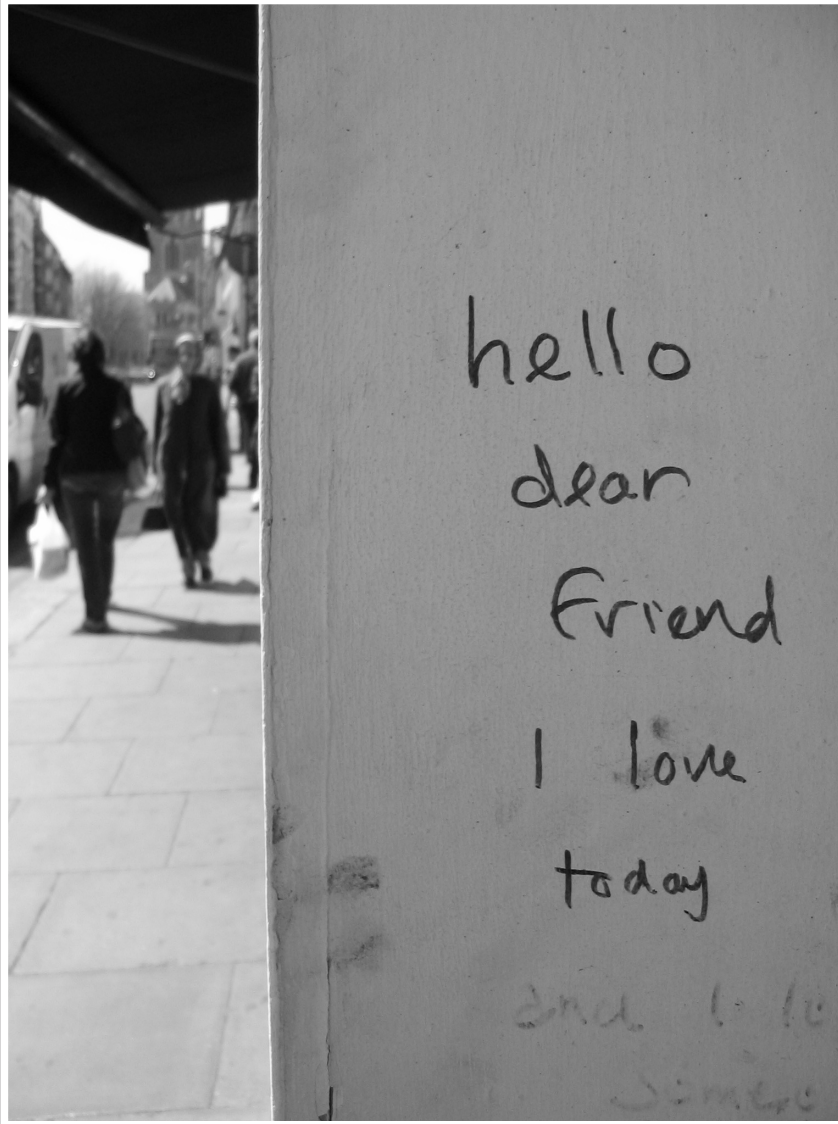 hello
dear
friend
I love
today
and I